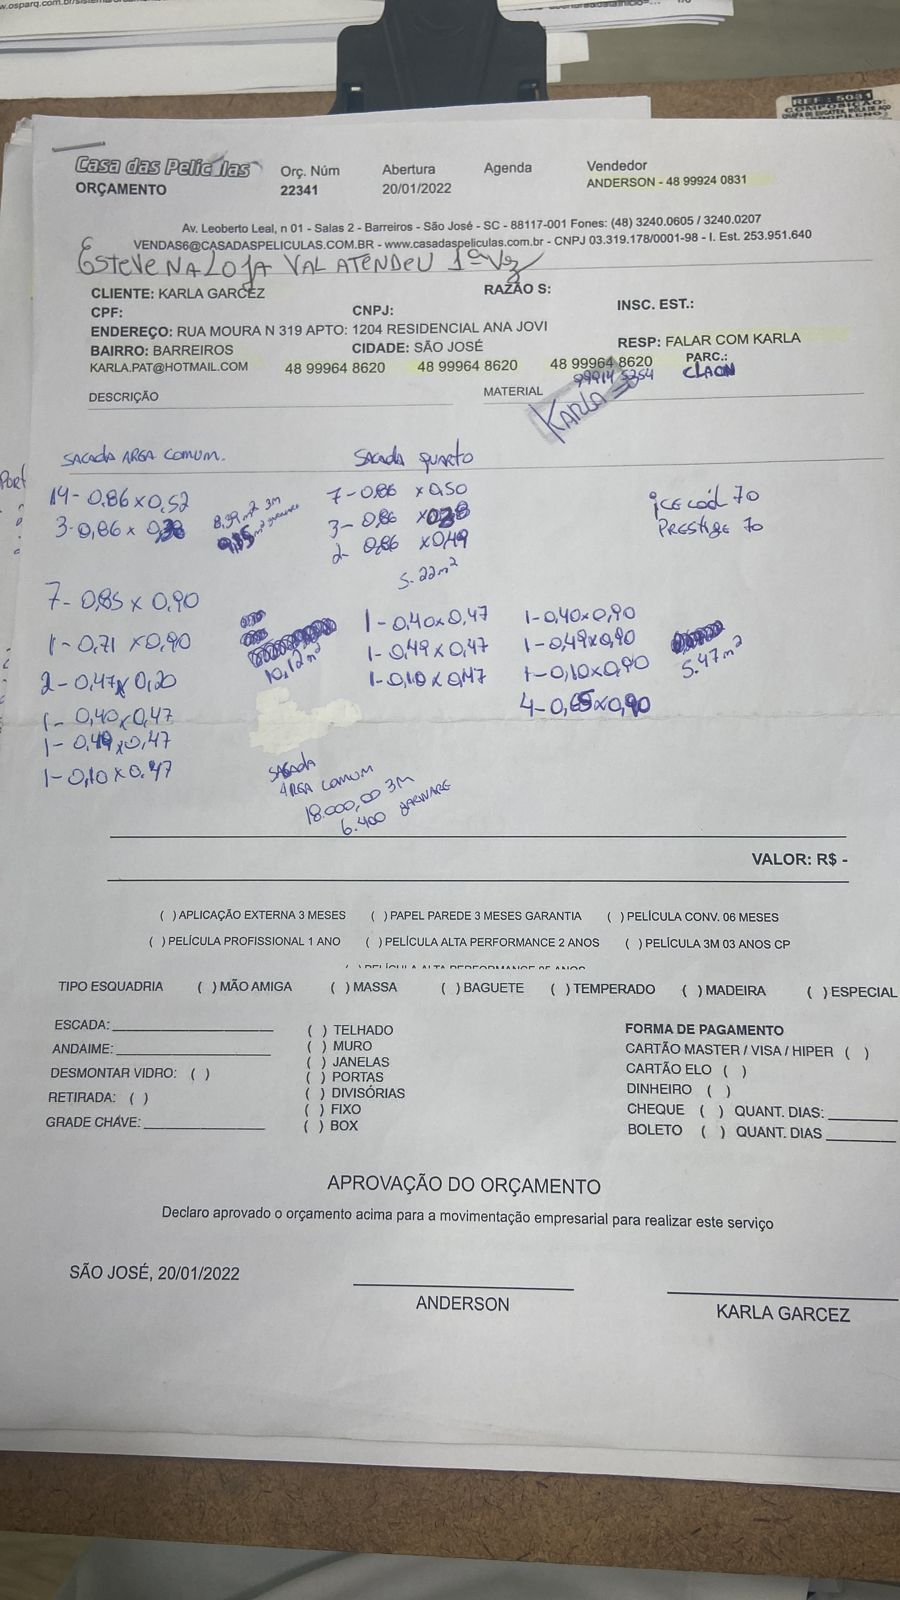 w.osparq.com.br/sistema
Casa das Películas
ORÇAMENTO
Orç. Núm
22341
Abertura
20/01/2022
Agenda
Vendedor
ANDERSON - 48 99924 0831
REF: 5031
COMPOSIÇÃO:
Av. Leoberto Leal, n 01 - Salas 2 - Barreiros - São José - SC - 88117-001 Fones: (48) 3240.0605 / 3240.0207
VENDAS6@CASADASPELICULAS.COM.BR - www.casadaspeliculas.com.br - CNPJ 03.319.178/0001-98 - I. Est. 253.951.640
ESTEVE NA LOJA VAL ATENDEU 1ª VEZ
CLIENTE: KARLA GARCEZ
RAZÃO S:
CPF:
CNPJ:
INSC. EST.:
ENDEREÇO: RUA MOURA N 319 APTO: 1204 RESIDENCIAL ANA JOVI
BAIRRO: BARREIROS
CIDADE: SÃO JOSÉ
RESP: FALAR COM KARLA
KARLA.PAT@HOTMAIL.COM
48 99964 8620
48 99964 8620
48 99964 8620
PARC.:
KARLA
DESCRIÇÃO
MATERIAL
SACADA AREA COMUM.
14 - 0,86 x 0,52
3 - 0,86 x
8,39m² 3M
SACADA QUARTO
7 - 0,86 x 0,50
3 - 0,86 x
2 - 0,86 x 0,49
5.22m²
70
PRESTIGE 70
7 - 0,85 x 0,90
1 - 0,71 x 0,90
2 - 0,47 x 0,20
1 - 0,40 x 0,47
1 - 0,49 x 0,47
1 - 0,10 x 0,47
10,12m²
1 - 0,40 x 0,47
1 - 0,49 x 0,47
1 - 0,10 x 0,47
1 - 0,40 x 0,90
1 - 0,49 x 0,90
1 - 0,10 x 0,90
4 - 0,65 x 0,90
5.47m²
SACADA
AREA COMUM
18.000,00 3M
6.400
VALOR: R$ -
( ) APLICAÇÃO EXTERNA 3 MESES ( ) PAPEL PAREDE 3 MESES GARANTIA ( ) PELÍCULA CONV. 06 MESES
( ) PELÍCULA PROFISSIONAL 1 ANO ( ) PELÍCULA ALTA PERFORMANCE 2 ANOS ( ) PELÍCULA 3M 03 ANOS CP
( ) PELÍCULA ALTA PERFORMANCE 05 ANOS
TIPO ESQUADRIA ( ) MÃO AMIGA ( ) MASSA ( ) BAGUETE ( ) TEMPERADO ( ) MADEIRA ( ) ESPECIAL
ESCADA:
ANDAIME:
DESMONTAR VIDRO: ( )
RETIRADA: ( )
GRADE CHAVE:
( ) TELHADO
( ) MURO
( ) JANELAS
( ) PORTAS
( ) DIVISÓRIAS
( ) FIXO
( ) BOX
FORMA DE PAGAMENTO
CARTÃO MASTER / VISA / HIPER ( )
CARTÃO ELO ( )
DINHEIRO ( )
CHEQUE ( ) QUANT. DIAS:
BOLETO ( ) QUANT. DIAS
APROVAÇÃO DO ORÇAMENTO
Declaro aprovado o orçamento acima para a movimentação empresarial para realizar este serviço
SÃO JOSÉ, 20/01/2022
ANDERSON
KARLA GARCEZ